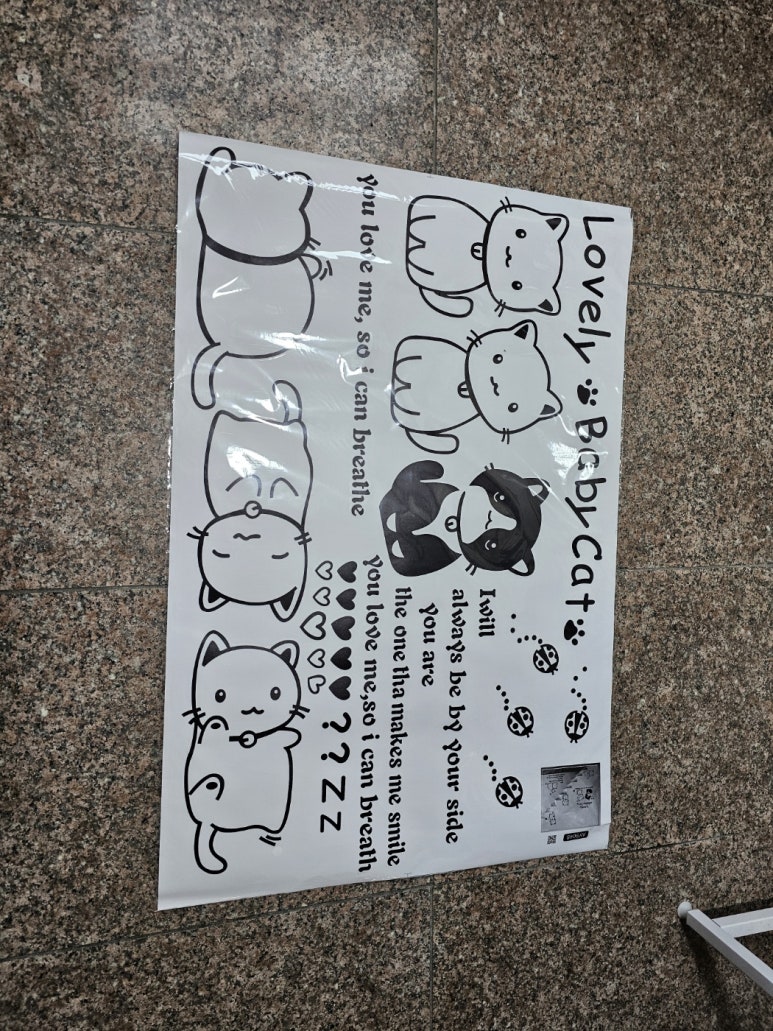 Lovely BabyCat
I will
always be by your side
you are
the one tha makes me smile
you love me, so i can breathe
you love me,so i can breath
? ? Z Z